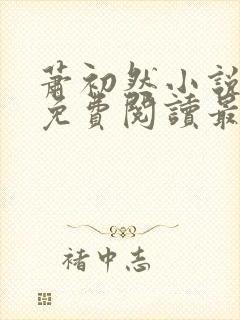 蕭初然小說
免費閱讀最
褚中志